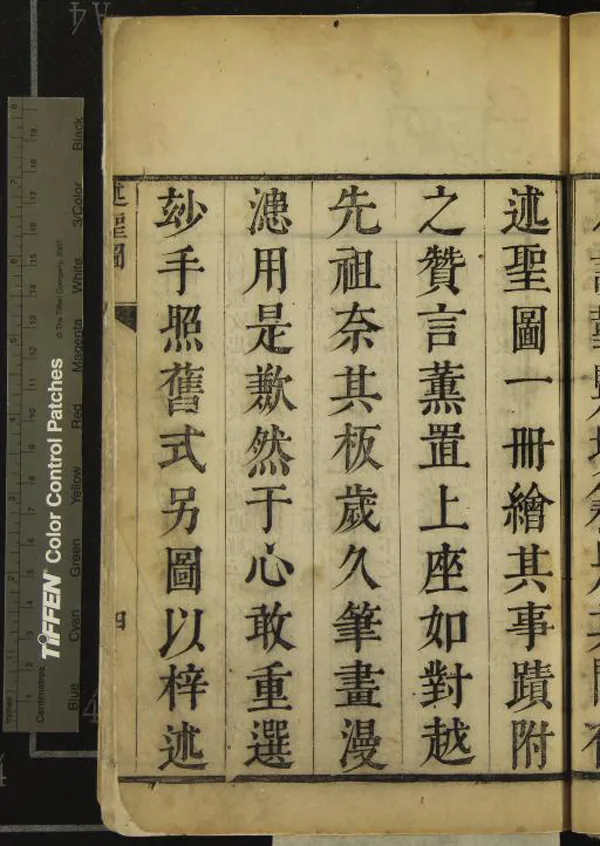 述聖圖一冊繪其事蹟附
之贊言薰置上座如對越
先祖奈其板歲久筆畫漫
漶用是歉然于心敢重選
玅手照舊式另圖以梓述
述聖圖
四
TIFFEN Color Control Patches
© The Tiffen Company, 2007
Inches
Centimetres
Blue Cyan Green Yellow Red Magenta White 3/Color Black